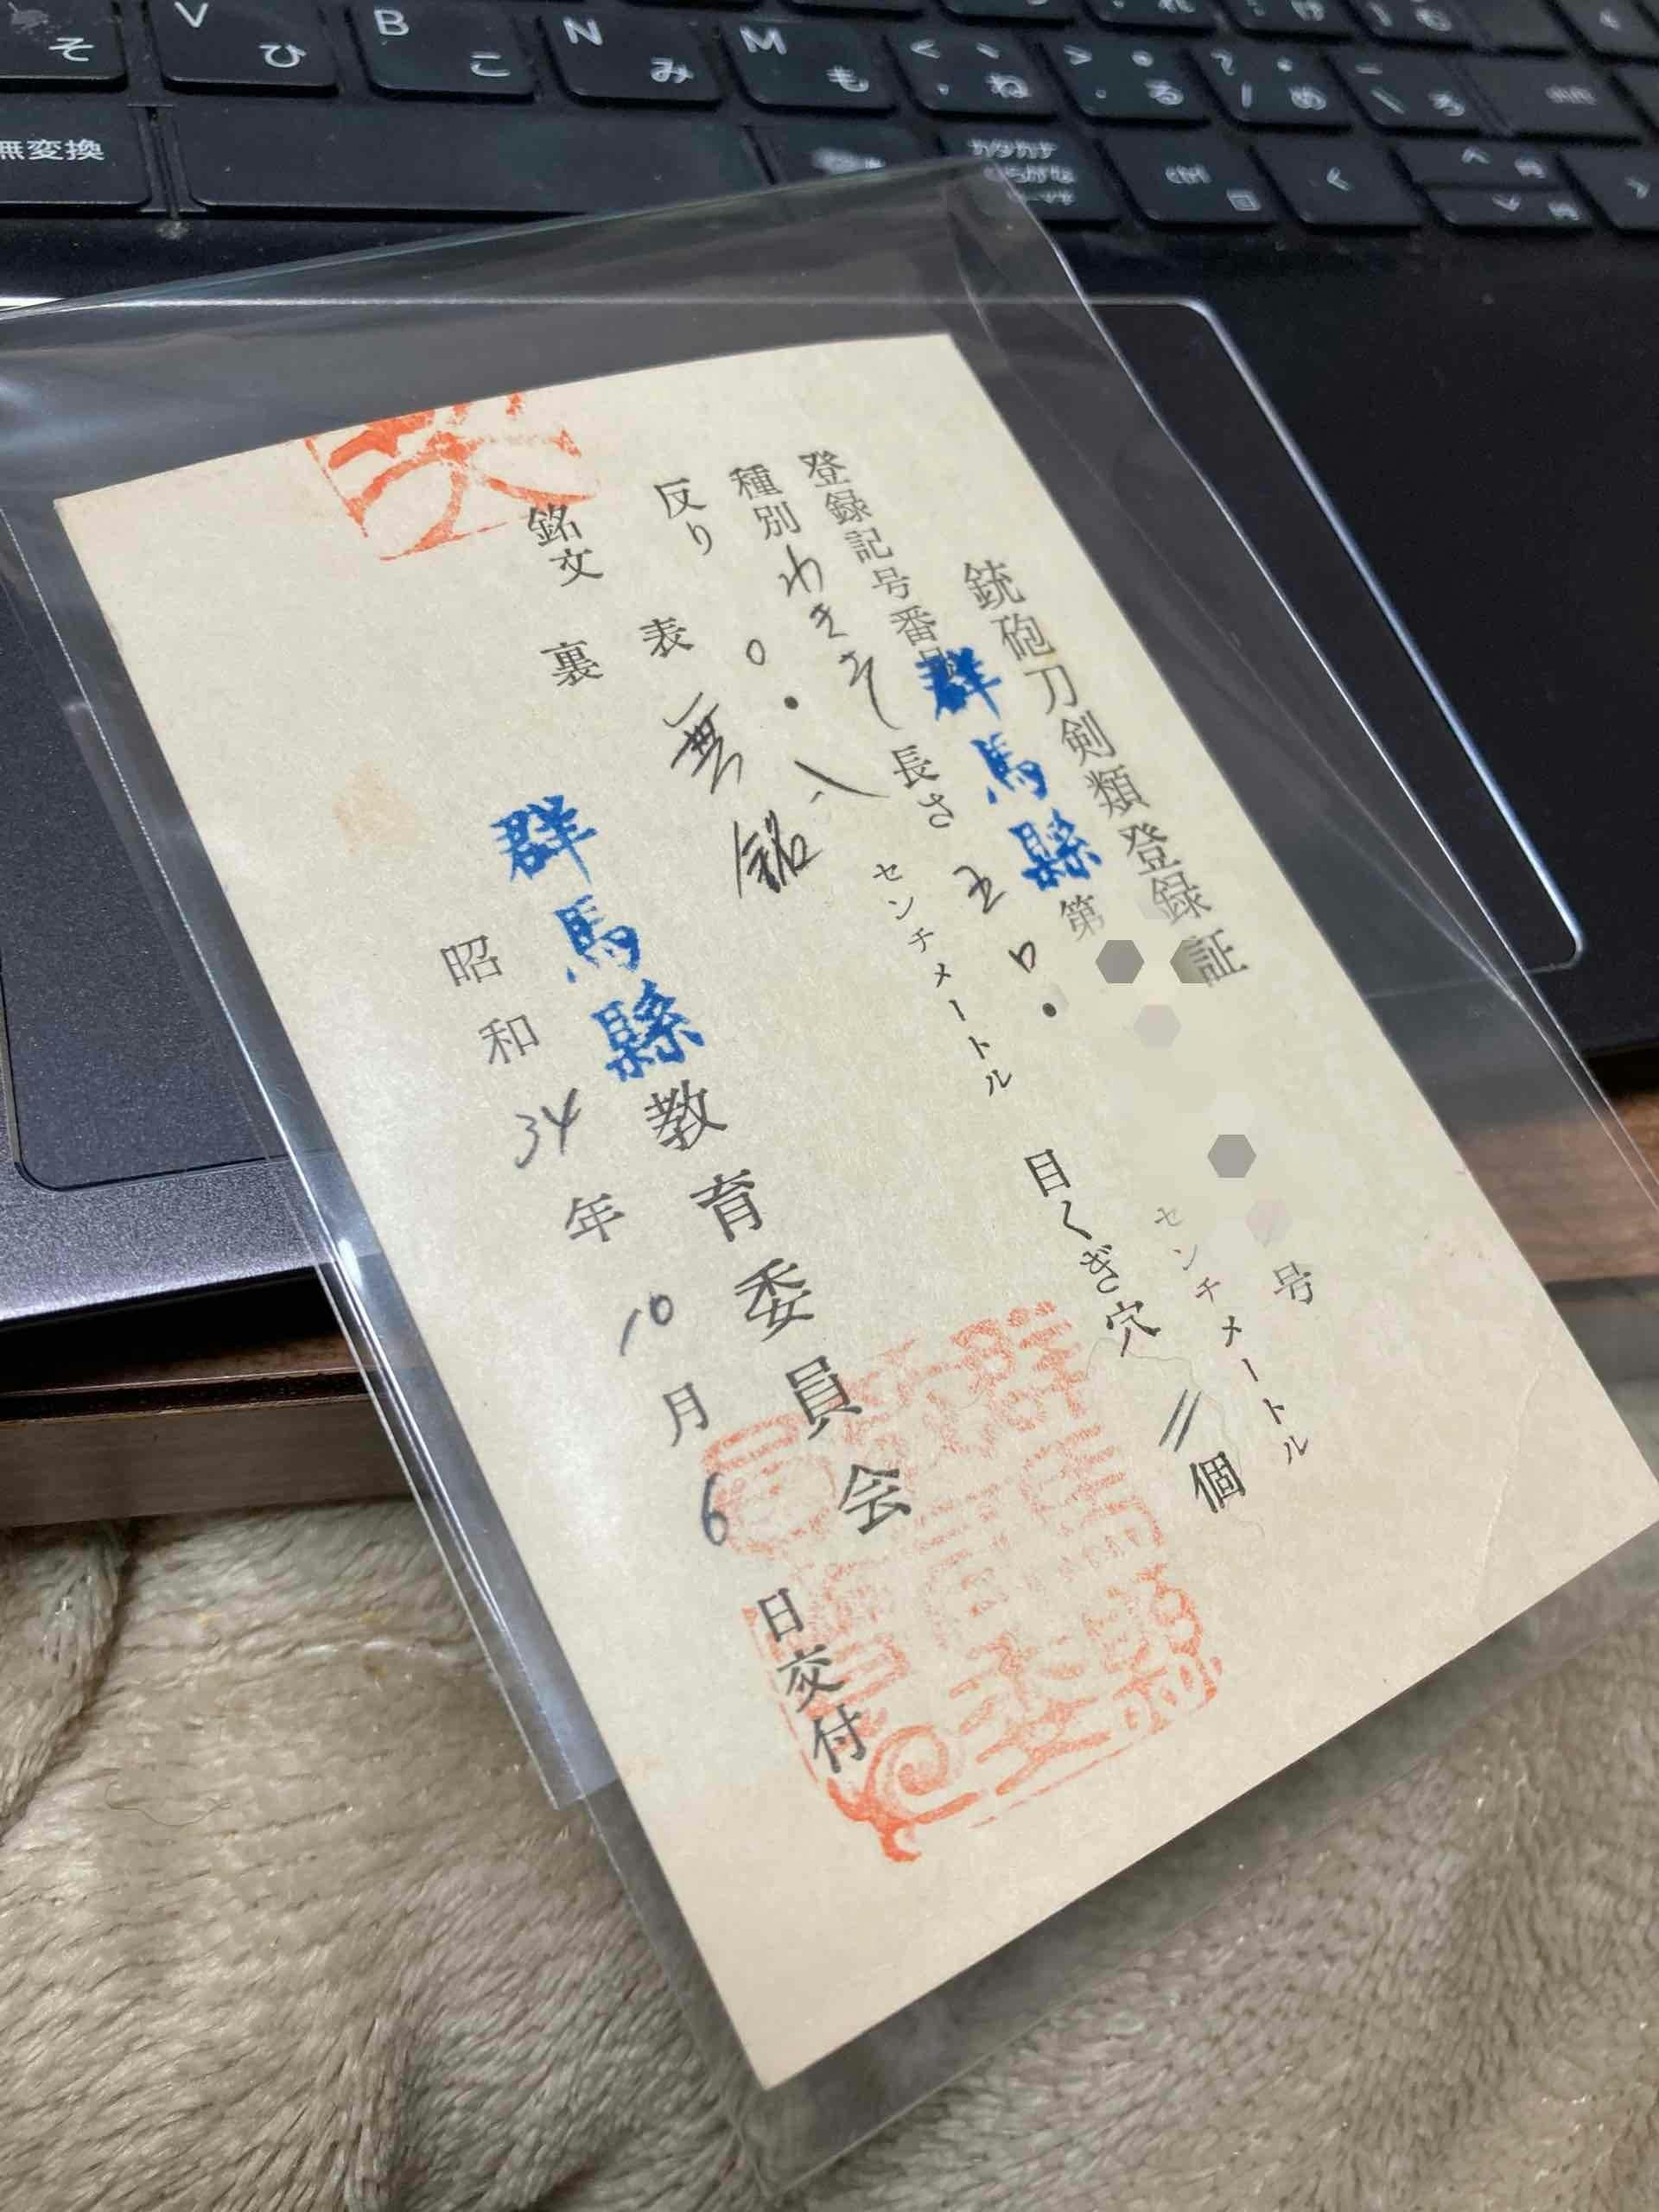 銃砲刀剣類登録証
登録記号番号 群馬縣第 号
種別 わきさし 長さ 五〇. センチメートル
反り 〇.八 センチメートル 目くぎ穴 〃 個
銘文 表 無銘
裏
群馬縣教育委員会
昭和34年10月6日交付
V ひ
B こ
N み
M も
< 、 , ね
> 。 . る
? ・ / め
_ \ ろ
そ
無変換
カタカナ
ひらがな
ctrl
shift